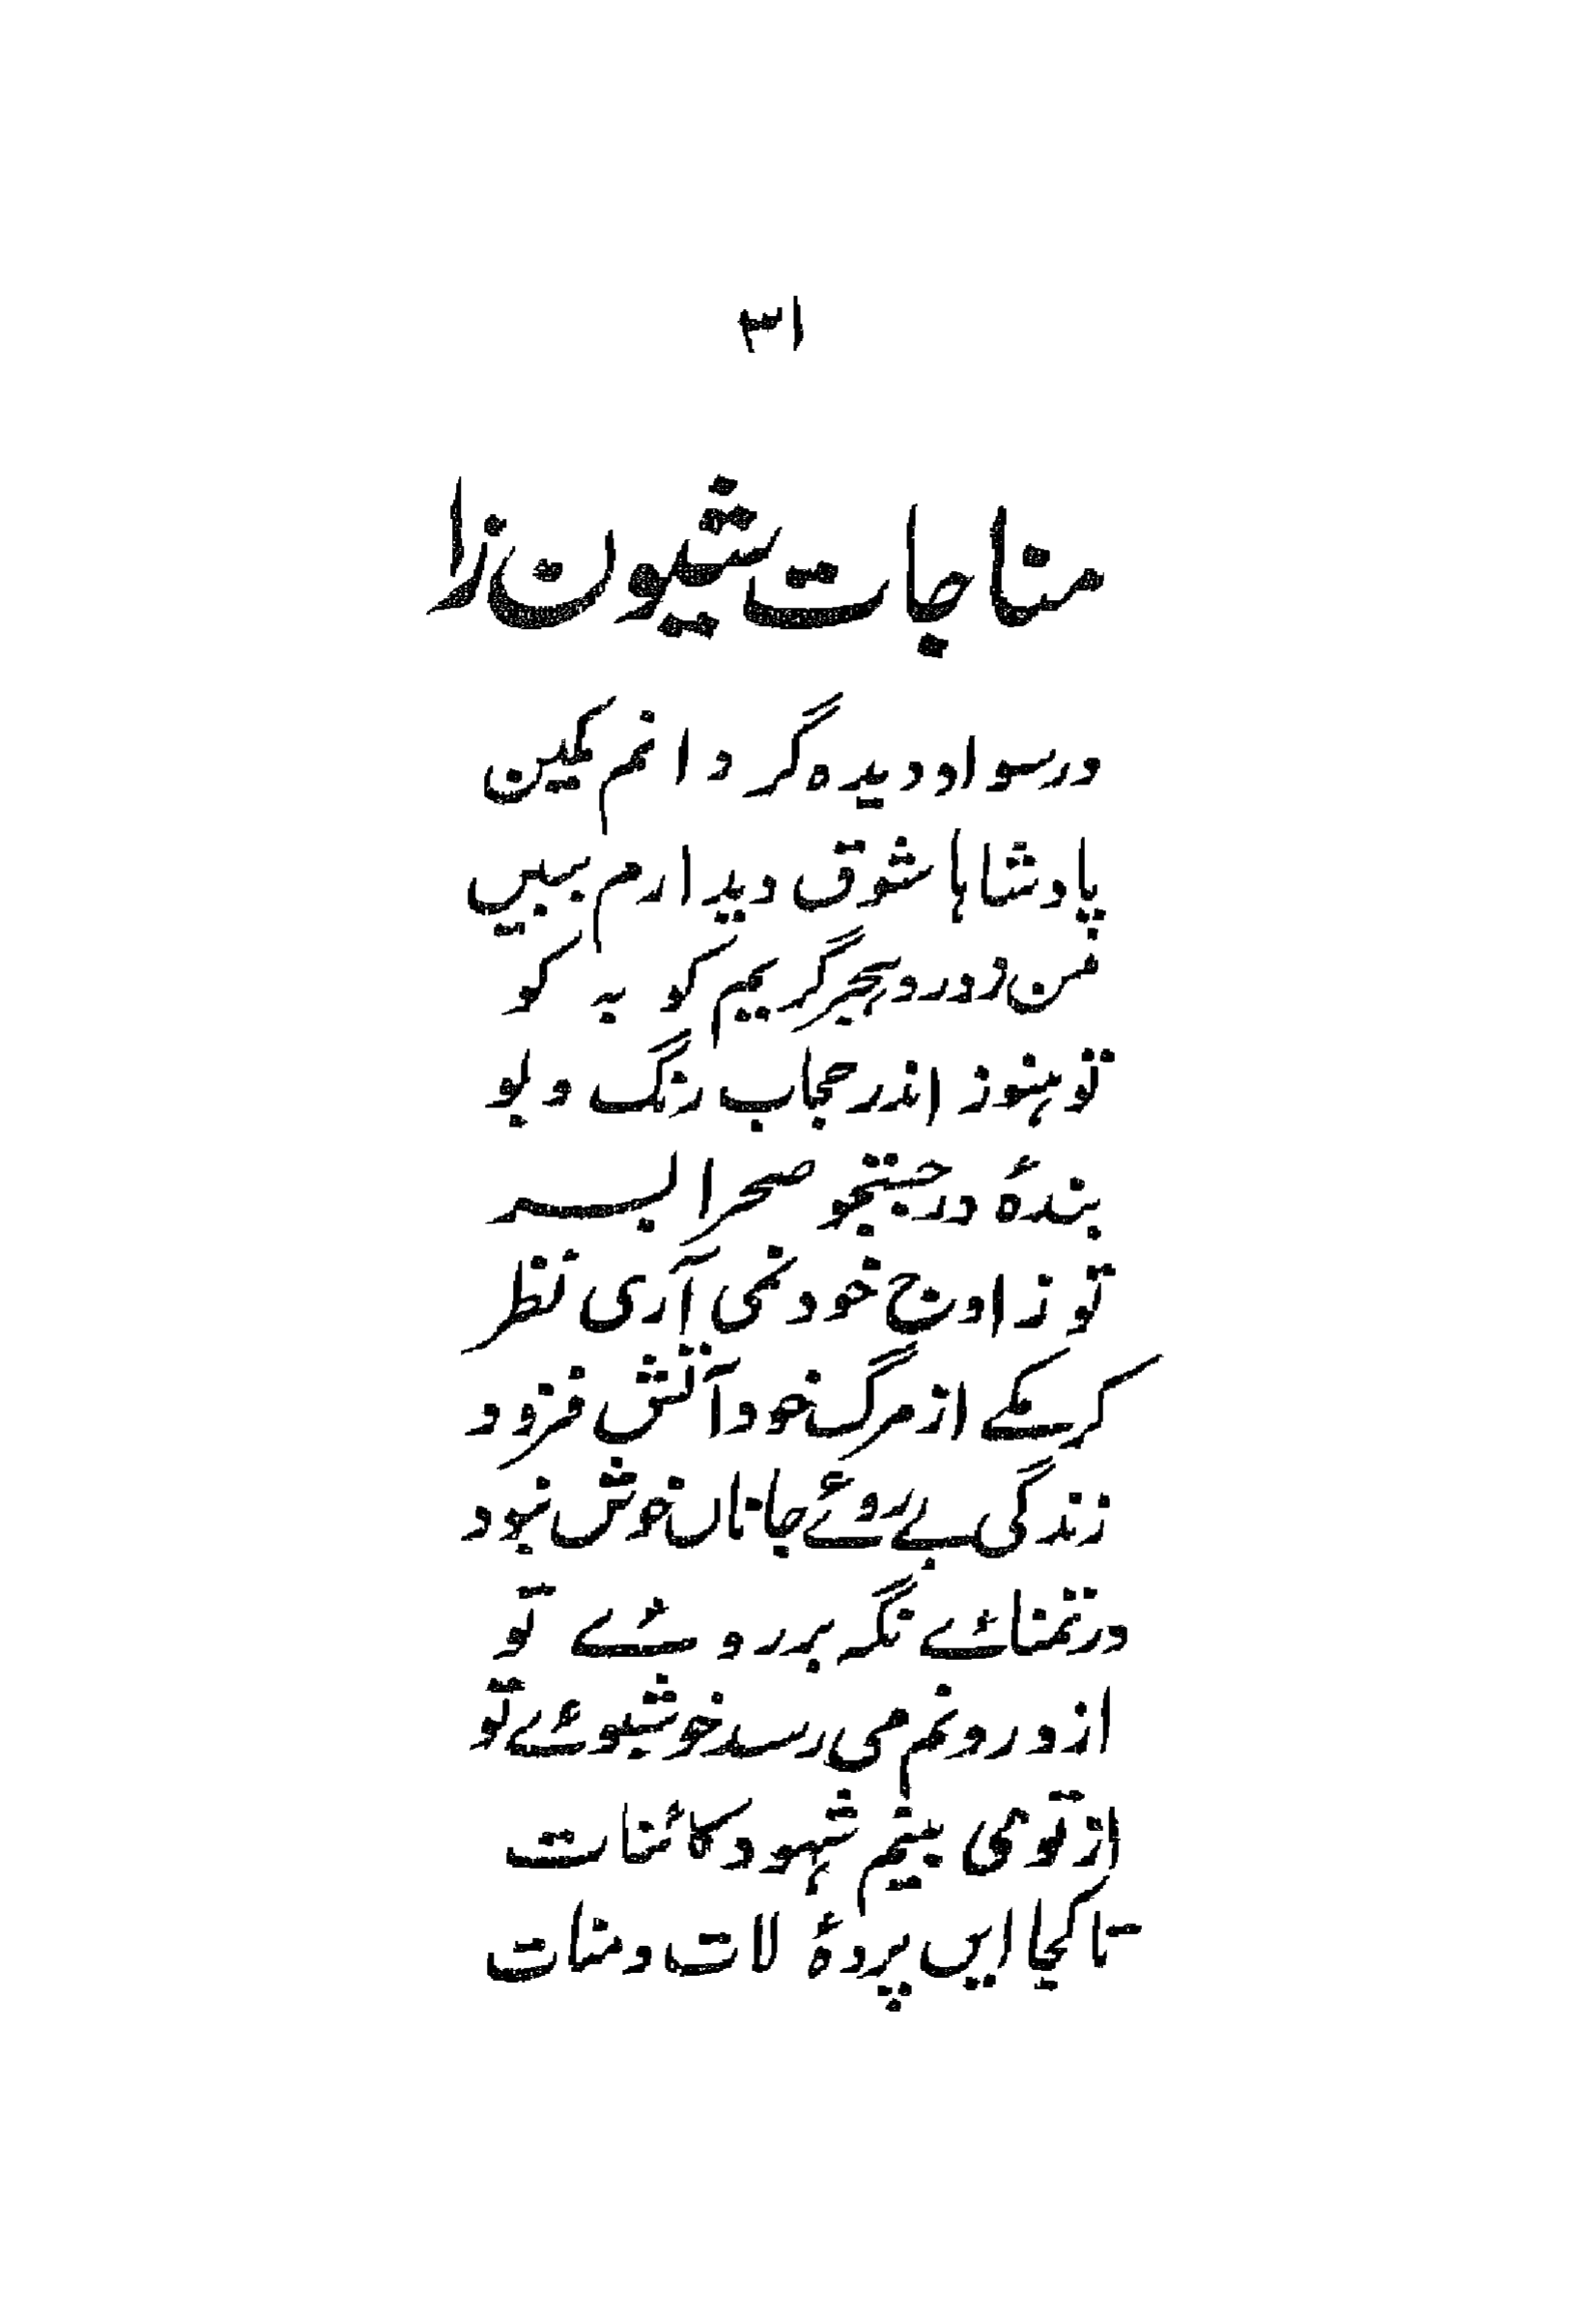 ۳۱
مناجات شیون زا
در سواد دیدہ گر دانم کمین
پادشاہا شوق دیدارم ببیں
من ز درد ہجر گریم کو بہ کو
تو ہنوز اندر حجاب رنگ و بو
بندۂ در جستجو صحرا بسر
تو ز اوج خود نمی آری نظر
کرمکے از مرگ خود آتش فزود
زندگی بے روئے جاناں خوش نبود
در تمنائے نگہ بر روئے تو
از درونم می رسد خوشبوئے تو
از تو می بینم شہود کائنات
تا کجا ایں پردۂ لات و منات